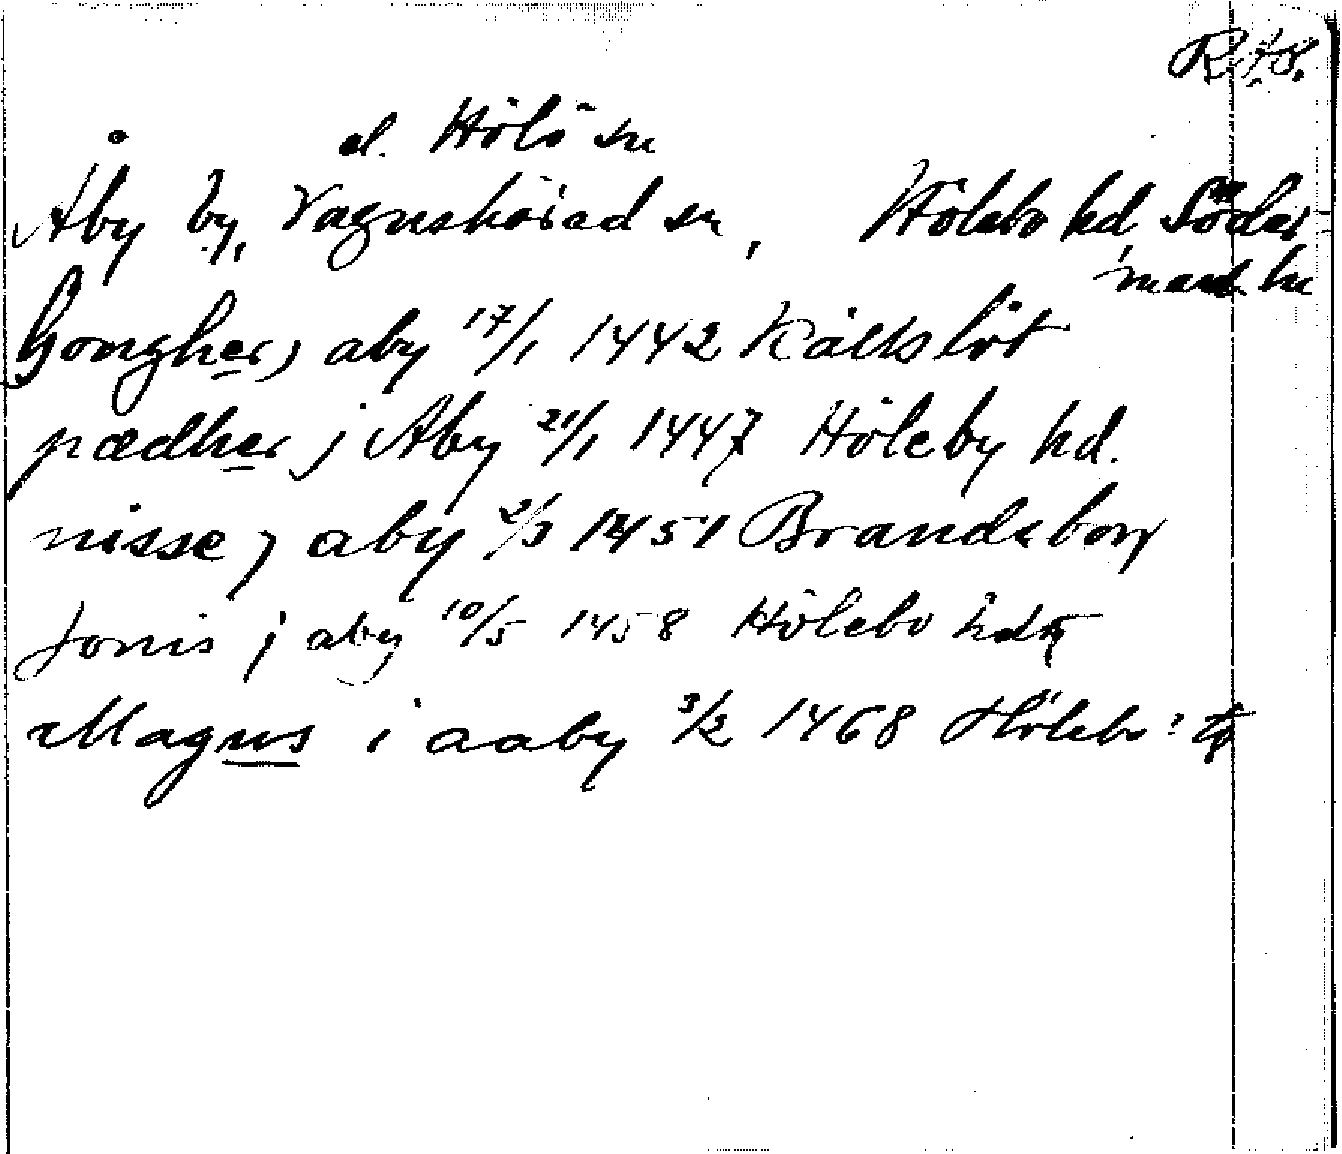 RAS.
el. Hölö sn
Åby by, Vagnshärad sn, Hölebo hd Söder
manl. län
Gongher j aby 17/1 1442 Kälkslöt
pædher j Aby 21/1 1447 Höleby hd.
nisse j aby 2/3 1451 Brandsborg
Jonis j aby 10/5 1458 Hölebo hd
Magnus i aaby 3/2 1468 Hölebo